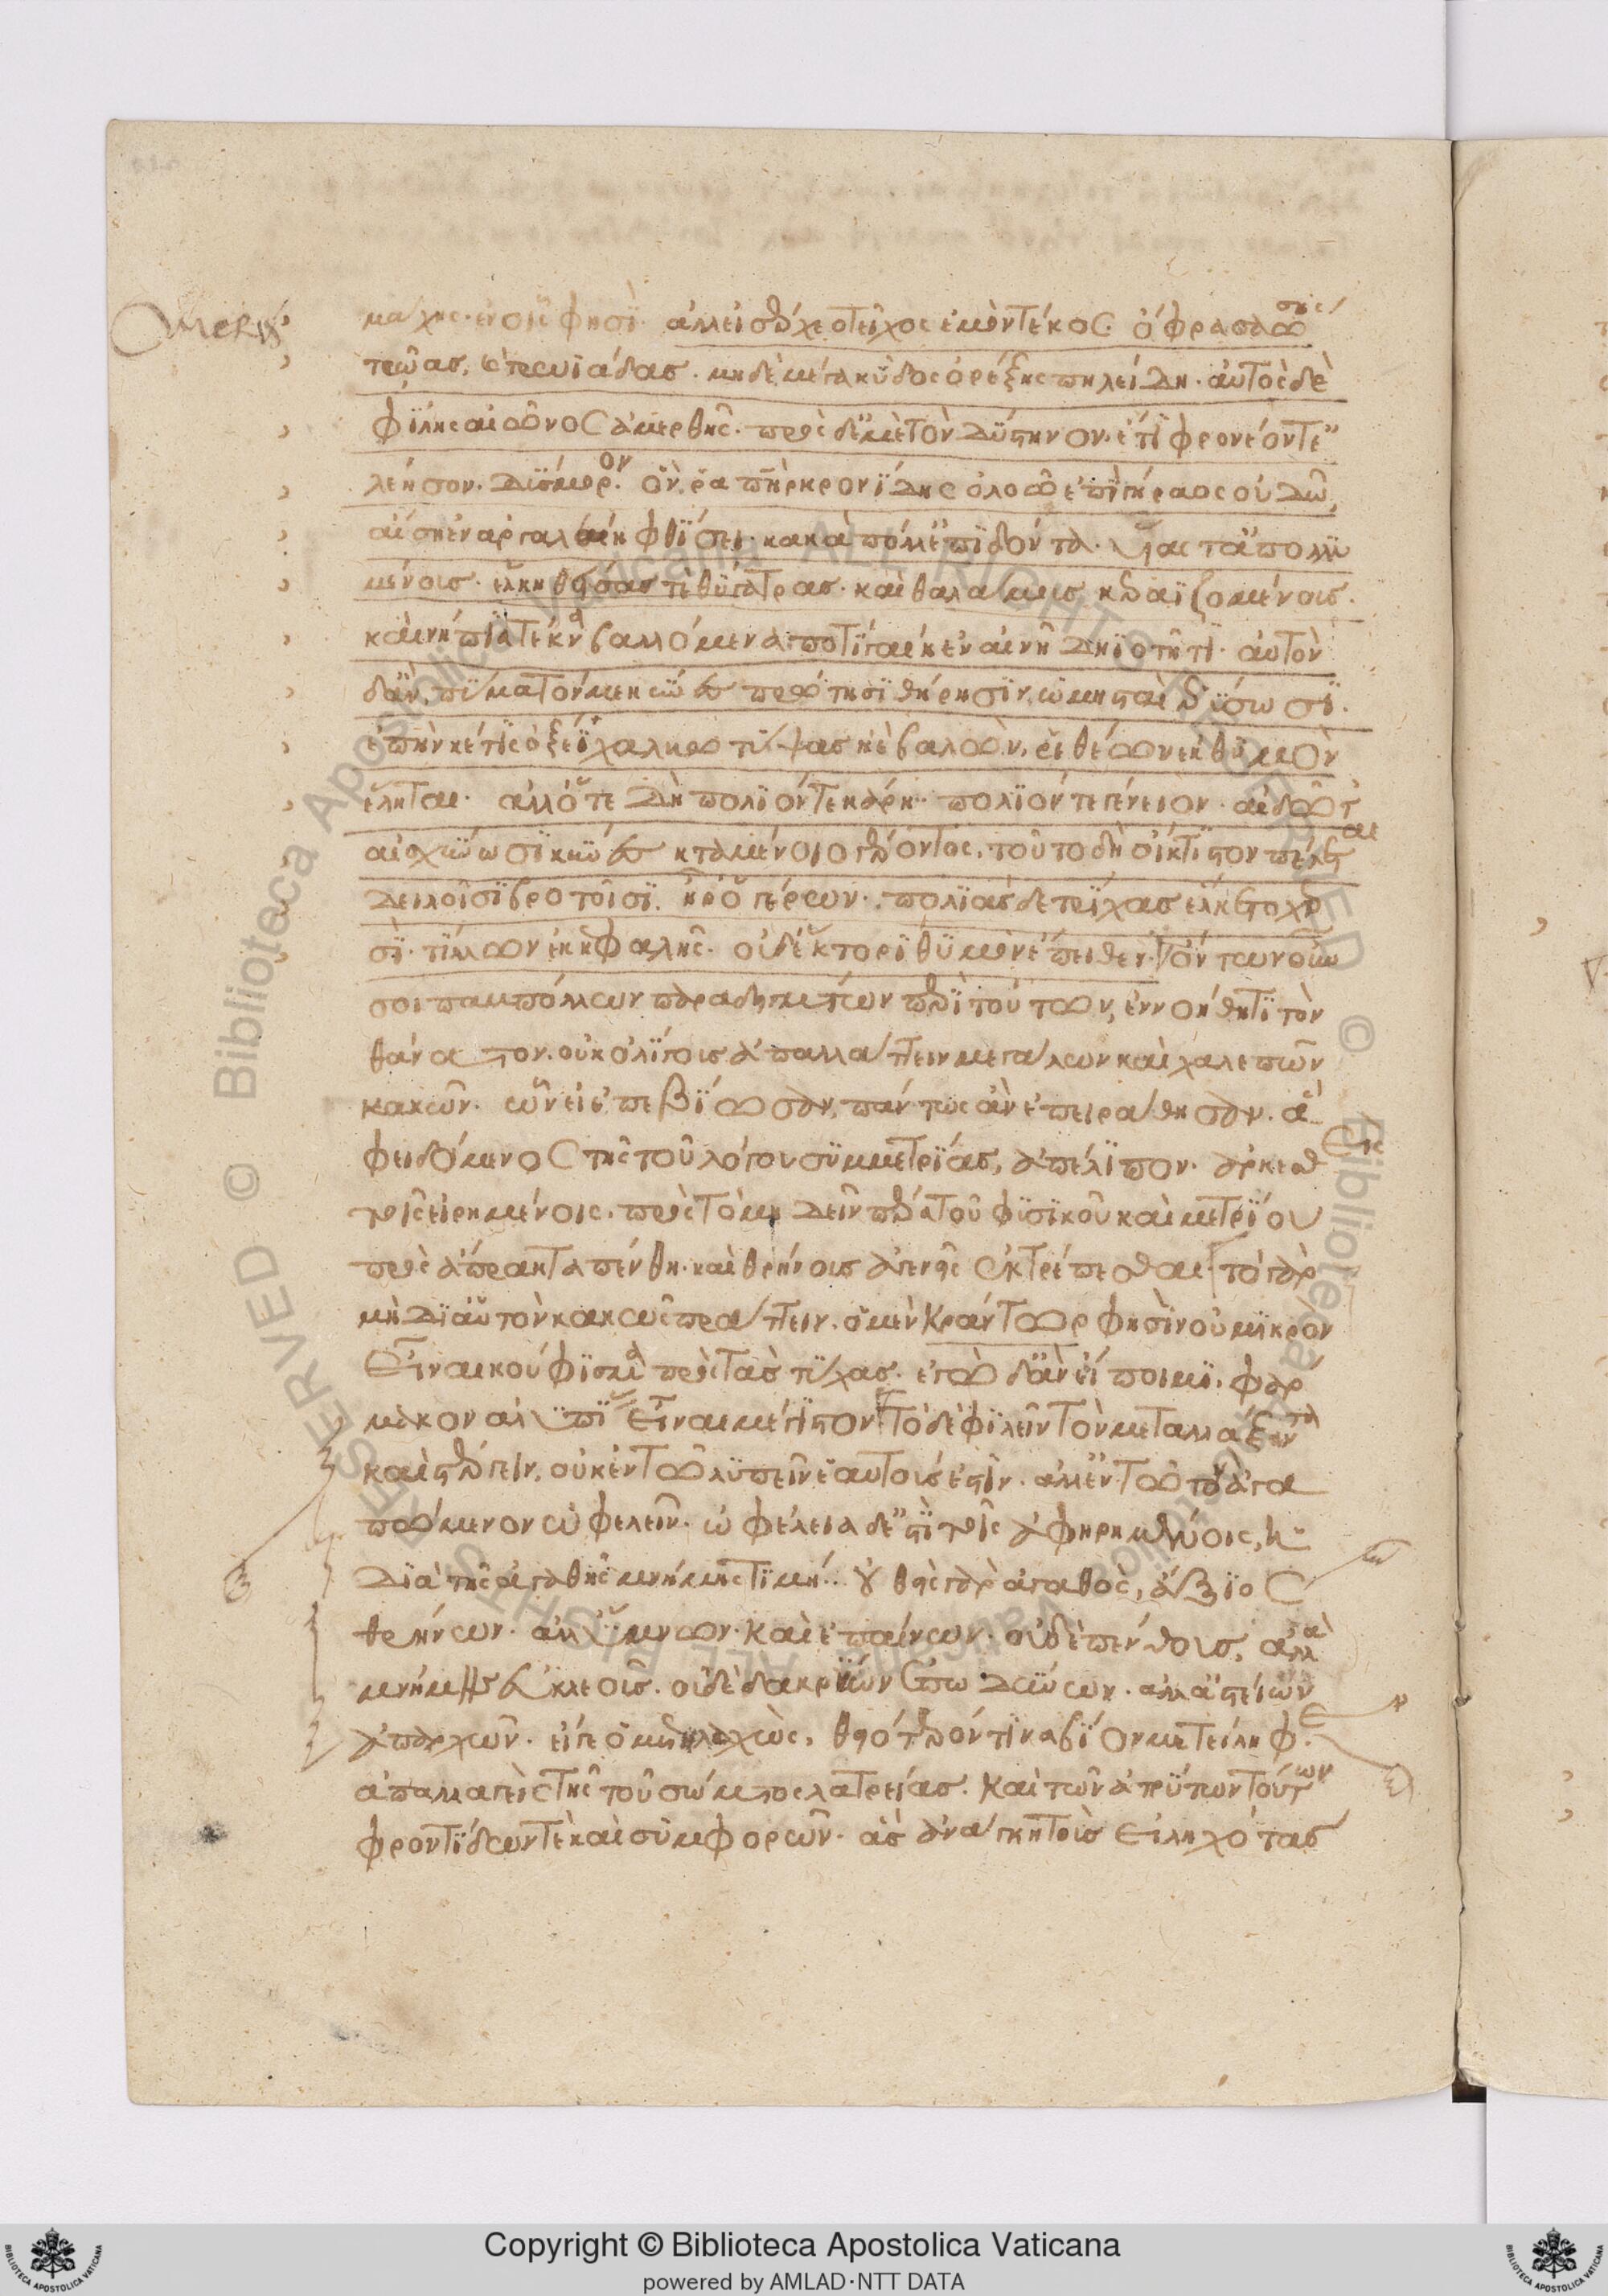 Omerus
μάχης. ἐν οἷς φησί. ἀλλ' εἰσέρχεο τεῖχος ἐμὸν τέκος. ὄφρα σαώσῃς
τρῶας καὶ τρωϊάδας. μηδὲ μέγα κῦδος ὀρέξῃς πηλείδῃ. αὐτὸς δὲ
φίλης αἰῶνος ἀμερθῇς. πρὸς δ' ἐμὲ τὸν δύστηνον ἔτι φρονέοντ' ἐ
λέησον. δύσμορον. ὅν ῥα πατὴρ κρονίδης ὀλοῷ ἐπὶ γήραος οὐδῷ
αἴσῃ ἐν ἀργαλέῃ φθίσει. κακὰ πόλλ' ἐπιδόντα. υἷάς τ' ἀπολλυ
μένους. ἑλκηθείσας τὲ θύγατρας. καὶ θαλάμους κεραϊζομένους.
καὶ νήπια τέκνα βαλλόμενα ποτὶ γαίῃ ἐν αἰνῇ δηϊοτῆτι. αὐτὸν
δ' ἂν πύματόν με κύνες πρώτῃσι θύρῃσιν ὠμησταὶ ἐρύουσι.
ἐπήν κέ τις ὀξέϊ χαλκῷ τύψας ἠὲ βαλὼν, ῥεθέων ἐκ θυμὸν
ἕληται. ἀλλ' ὅτε δὴ πολιόν τε κάρη. πολιόν τε γένειον. αἰδῶ τ'
αἰσχύνωσι κύνες κταμένοιο γέροντος. τοῦτο δὴ οἴκτιστον πέλεται
δειλοῖσι βροτοῖσι. ἦ ῥ' ὁ γέρων. πολιὰς δὲ τρίχας ἕλκετο χερ
σὶ. τίλλων ἐκ κεφαλῆς. οὐδ' ἕκτορι θυμὸν ἔπειθεν. ὄντων οὖν
σοι παμπόλλων παραδειγμάτων περὶ τούτων, ἐννοήθητι τὸν
θάνατον. οὐκ ὀλίγους ἀπαλλάττειν μεγάλων καὶ χαλεπῶν
κακῶν. ὧν εἰ ἐπεβίωσαν, πάντως ἂν ἐπειράθησαν. ἃ
φειδόμενος τῆς τοῦ λόγου συμμετρίας, ἀπέλιπον. ἀρκεσθεὶς
τοῖς εἰρημένοις. πρὸς τὸ μὴ δεῖν πέρα τοῦ φυσικοῦ καὶ μετρίου
πρὸς ἄπρακτα πένθη. καὶ θρήνους ἀγενεῖς ἐκτρέπεσθαι. τὸ γὰρ
μὴ δι' αὑτὸν κακῶς πράττειν. ὁ μὲν κράντωρ φησὶν οὐ μικρὸν
εἶναι κούφισμα πρὸς τὰς τύχας. ἐγὼ δ' ἂν εἴποιμι. φάρ
μακον ἀλυπίας εἶναι μέγιστον. τὸ δὲ φιλεῖν τὸν μεταλλάξαντα
καὶ στέργειν, οὐκ ἐν τῷ λυπεῖν ἑαυτούς ἐστίν. ἀλλ' ἐν τῷ τὸν ἀγα
πώμενον ὠφελεῖν. ὠφέλεια δ' ἐστὶ τοῖς ἀφῃρημένοις, ἡ
διὰ τῆς ἀγαθῆς μνήμης τιμή. οὐθεὶς γὰρ ἀγαθὸς, ἄξιος
θρήνων. ἀλλ' ὕμνων. καὶ ἐπαίνων. οὐδὲ πένθους, ἀλλὰ
μνήμης εὐκλεοῦς. οὐδὲ δακρύων ἐπωδύνων. ἀλλ' ἀστείων
ἀπαρχῶν. εἴ γε ὁ μετηλλαχὼς, θειότερόν τινα βίον μετείληφε.
ἀπαλλαγεὶς τῆς τοῦ σώματος λατρείας. καὶ τῶν ἀτρύτων τούτων
φροντίδων τὲ καὶ συμφορῶν. ἃς ἀνάγκη τοὺς εἰληχότας
Copyright © Biblioteca Apostolica Vaticana
powered by AMLAD·NTT DATA